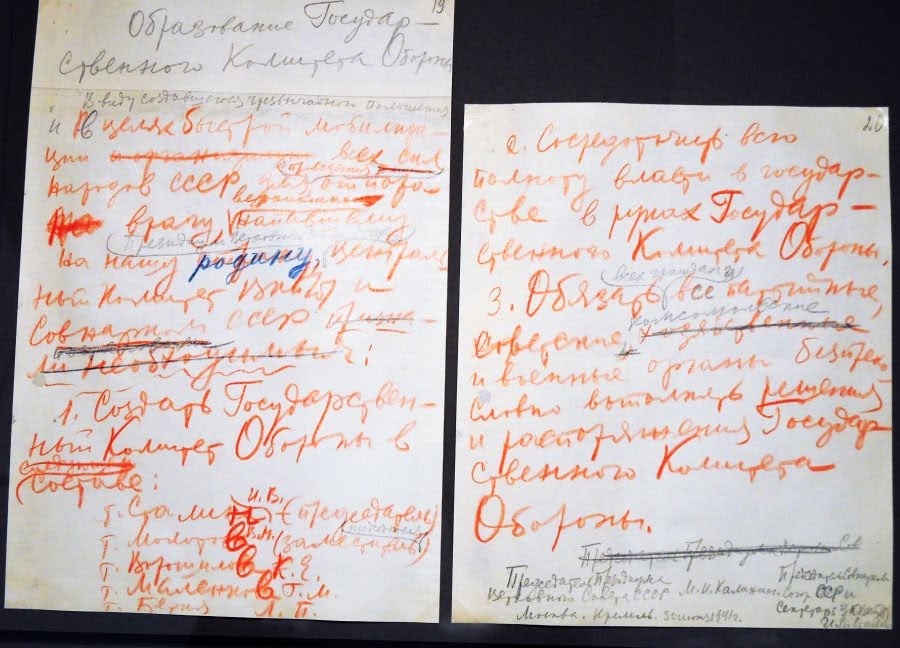 19
Образование Государ-
ственного Комитета Обороны
Ввиду создавшегося чрезвычайного положения
и в целях быстрой мобилиза-
ции всех сил
народов СССР для отпора
врагу, вероломно напавшему
(Президиум Верховного Совета СССР)
на нашу родину, Централь
ный Комитет ВКП(б) и
Совнарком СССР призна-
ли необходимым:
1. Создать Государствен-
ный Комитет Обороны в
составе:
И.В.
т. Сталин (председатель)
т. Молотов В.М. (заместитель)
т. Ворошилов К.Е.
т. Маленков Г.М.
т. Берия Л.П.
20
2. Сосредоточить всю
полноту власти в государ-
стве в руках Государ-
ственного Комитета Обороны.
(всех граждан и)
3. Обязать все партийные,
комсомольские
советские, хозяйственные
и военные органы беспреко
словно выполнять решения
и распоряжения Государ-
ственного Комитета
Обороны.
Председатель Президиума
Верховного Совета СССР М.И. Калинин.
Председатель Совнаркома
СССР и
секретарь ЦК ВКП(б)
И. Сталин
Москва. Кремль. 30 июня 1941 г.